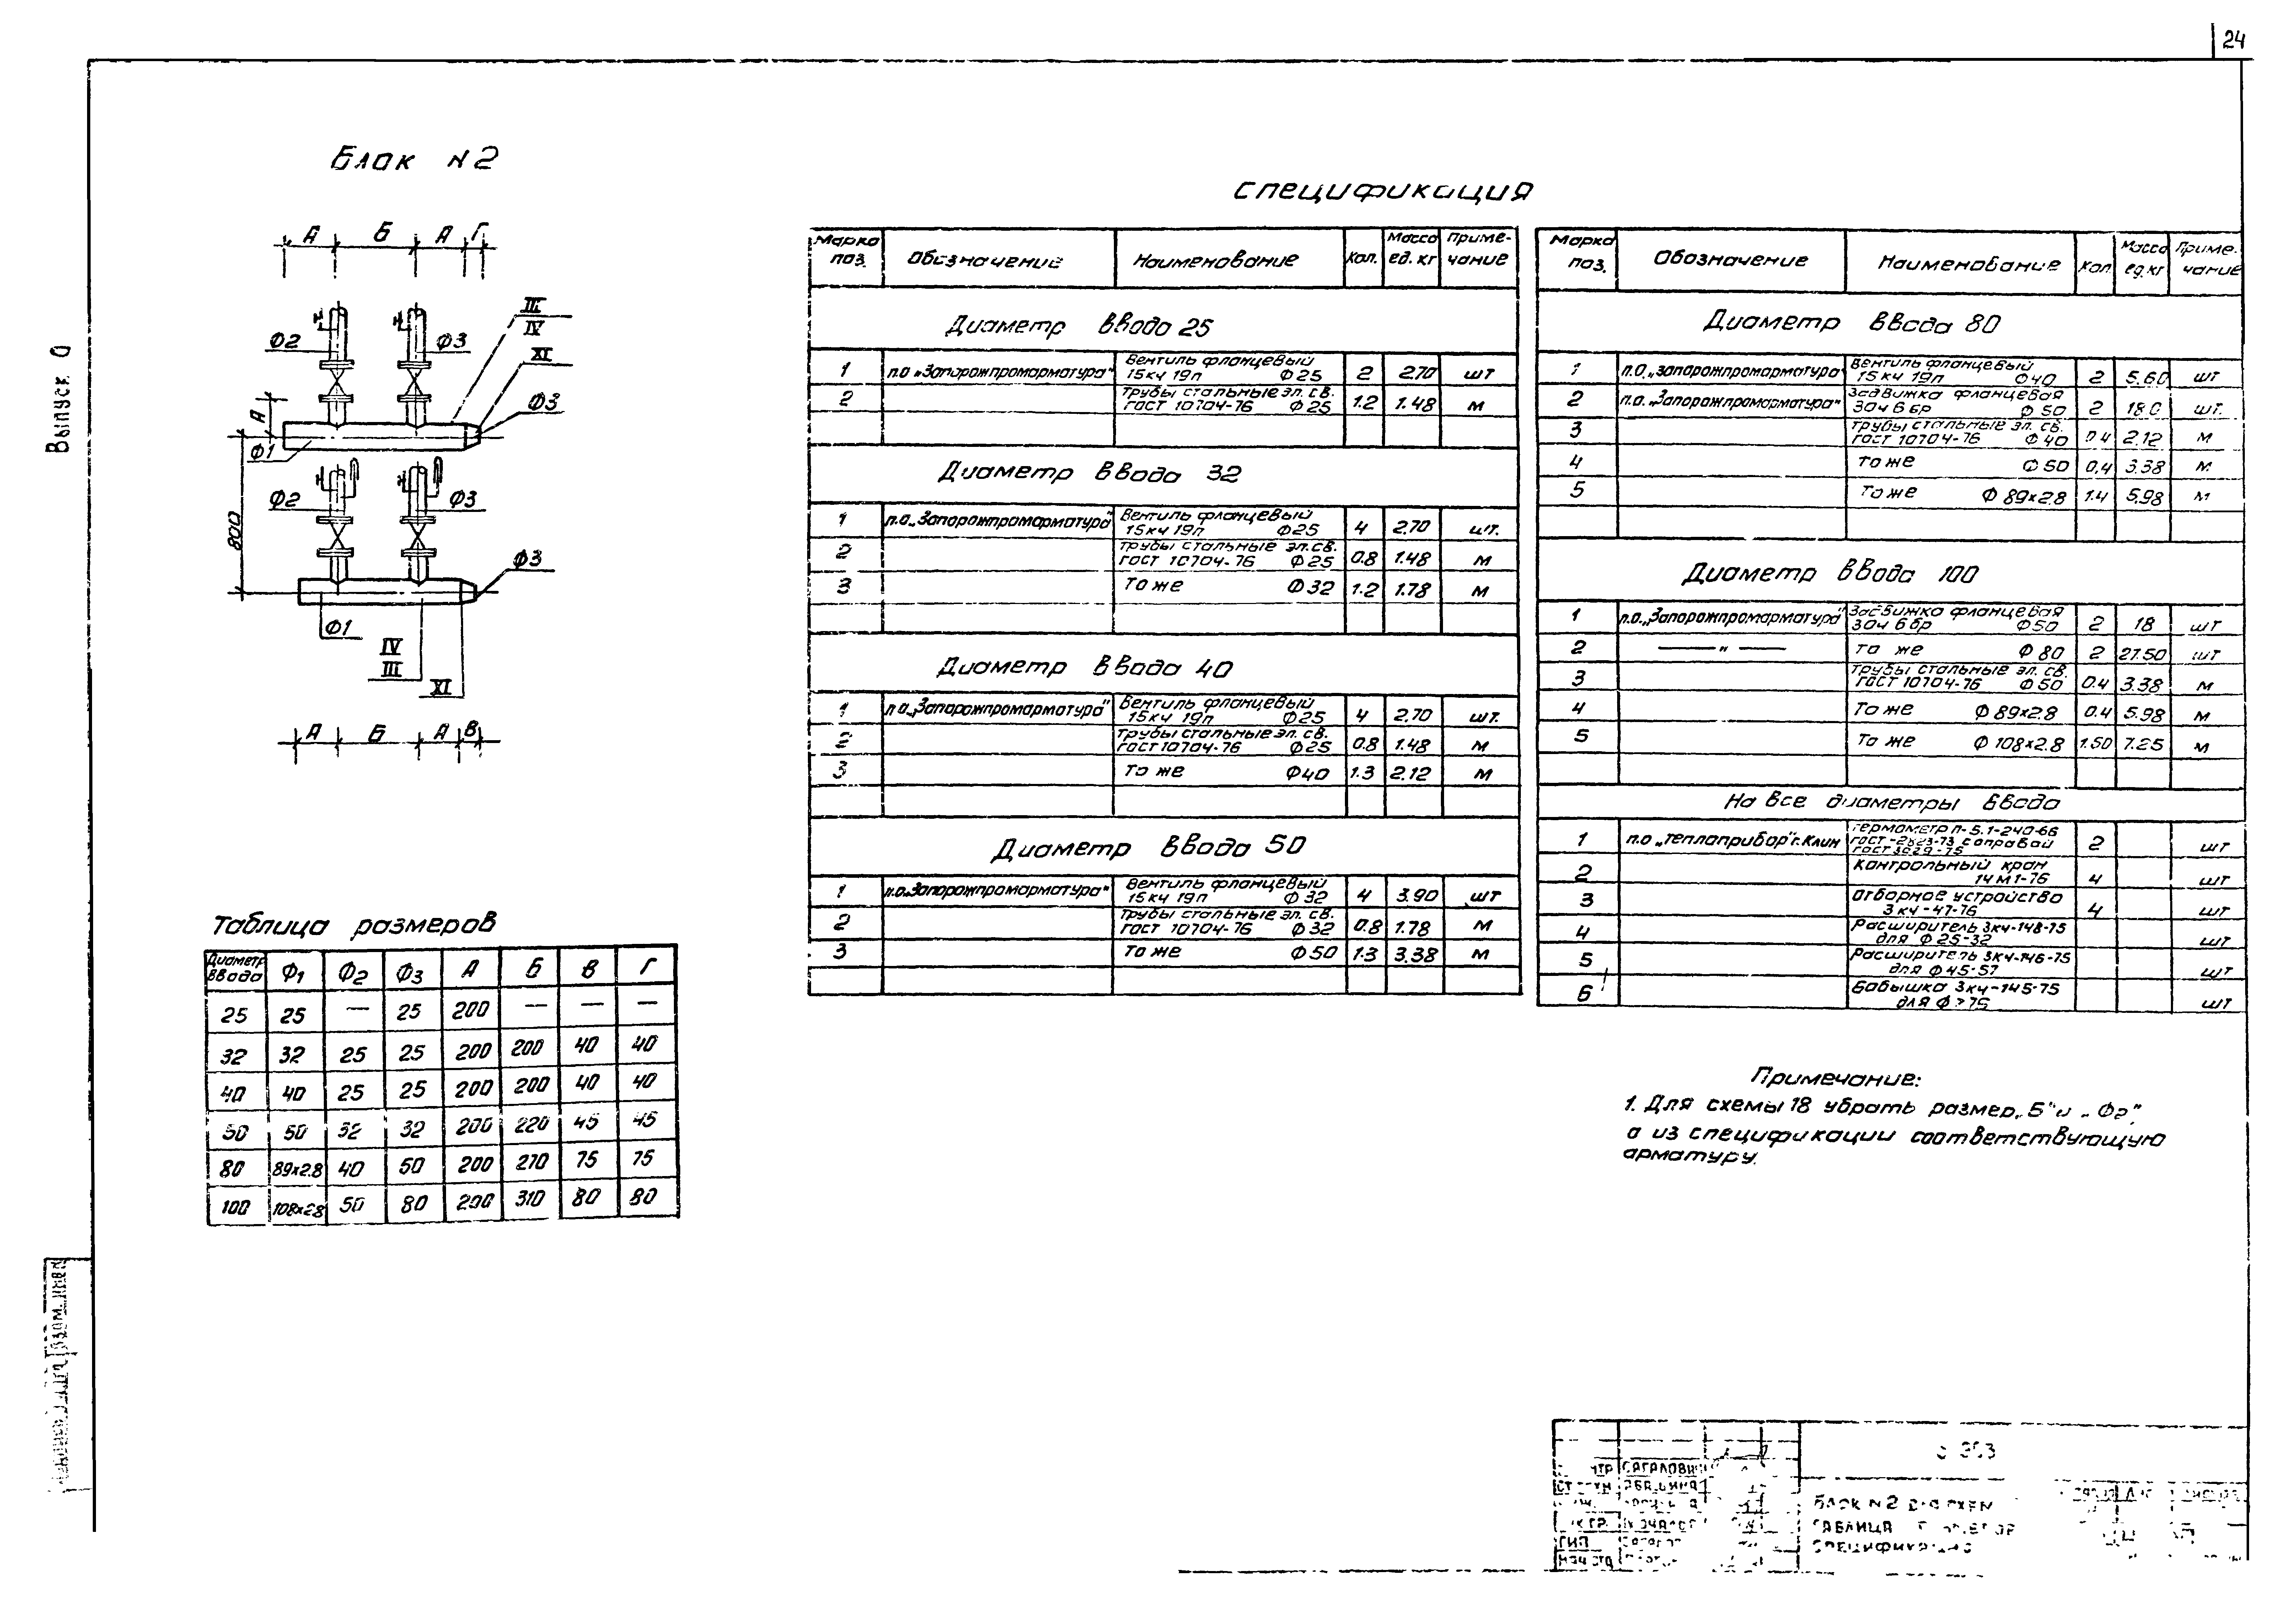 24
Выпуск 0
Блок N2
А Б А Г
Ф2 Ф3 III IV XI
А Ф3
Ф1
Ф2 Ф3
800
Ф3
Ф1
IV
III
XI
А Б А В
Таблица размеров
Диаметр ввода Ф1 Ф2 Ф3 А Б В Г
25 25 — 25 200 — — —
32 32 25 25 200 200 40 40
40 40 25 25 200 200 40 40
50 50 32 32 200 220 45 45
80 89×2.8 40 50 200 270 75 75
100 108×2.8 50 80 200 310 80 80
Спецификация
Марка поз. Обозначение Наименование Кол. Масса ед. кг Примечание
Диаметр ввода 25
1 п.о „Запорожпромарматура" Вентиль фланцевый 15кч 19п Ф25 2 2.70 шт
2 Трубы стальные эл. св. ГОСТ 10704-76 Ф25 1.2 1.48 м
Диаметр ввода 32
1 п.о. „Запорожпромарматура" Вентиль фланцевый 15кч 19п Ф25 4 2.70 шт.
2 Трубы стальные эл.св. ГОСТ 10704-76 Ф25 0.8 1.48 м
3 То же Ф32 1.2 1.78 м
Диаметр ввода 40
1 п.о „Запорожпромарматура" Вентиль фланцевый 15кч 19п Ф25 4 2.70 шт.
2 Трубы стальные эл. св. ГОСТ 10704-76 Ф25 0.8 1.48 м
3 То же Ф40 1.3 2.12 м
Диаметр ввода 50
1 п.о. Запорожпромарматура" Вентиль фланцевый 15кч 19п Ф32 4 3.90 шт
2 Трубы стальные эл. св. ГОСТ 10704-76 Ф32 0.8 1.78 м
3 То же Ф50 1.3 3.38 м
Марка поз. Обозначение Наименование Кол Масса ед.кг Примечание
Диаметр ввода 80
1 п.о. „Запорожпромарматура Вентиль фланцевый 15кч 19п Ф40 2 5.60 шт
2 п.о. „Запорожпромарматура" Задвижка фланцевая 30ч 6бр Ф50 2 18.0 шт.
3 Трубы стальные эл. св. ГОСТ 10704-76 Ф40 0.4 2.12 м
4 То же Ф50 0.4 3.38 м
5 То же Ф 89×2.8 1.4 5.98 м
Диаметр ввода 100
1 п.о. „Запорожпромарматура" Задвижка фланцевая 30ч 6бр Ф50 2 18 шт
2 — " — то же Ф80 2 27.50 шт
3 Трубы стальные эл. св. ГОСТ 10704-76 Ф50 0.4 3.38 м
4 То же Ф 89×2.8 0.4 5.98 м
5 То же Ф 108×2.8 1.50 7.25 м
На все диаметры ввода
1 п.о „Теплоприбор" г. Клин Термометр П-5.1-240-66 ГОСТ-2823-73 с оправой ГОСТ 3029-75 2 шт
2 Контрольный кран 14М1-76 4 шт
3 Отборное устройство 3кч-47-76 4 шт
4 Расширитель 3кч-148-75 для Ф25-32 шт
5 Расширитель 3кч-146-75 для Ф45-57 шт
6 Бобышка 3кч-145-75 для Ф>75 шт
Примечание:
1. Для схемы 18 убрать размер „Б" и „Ф2",
а из спецификации соответствующую
арматуру.
ГИП
Блок N2
Таблица